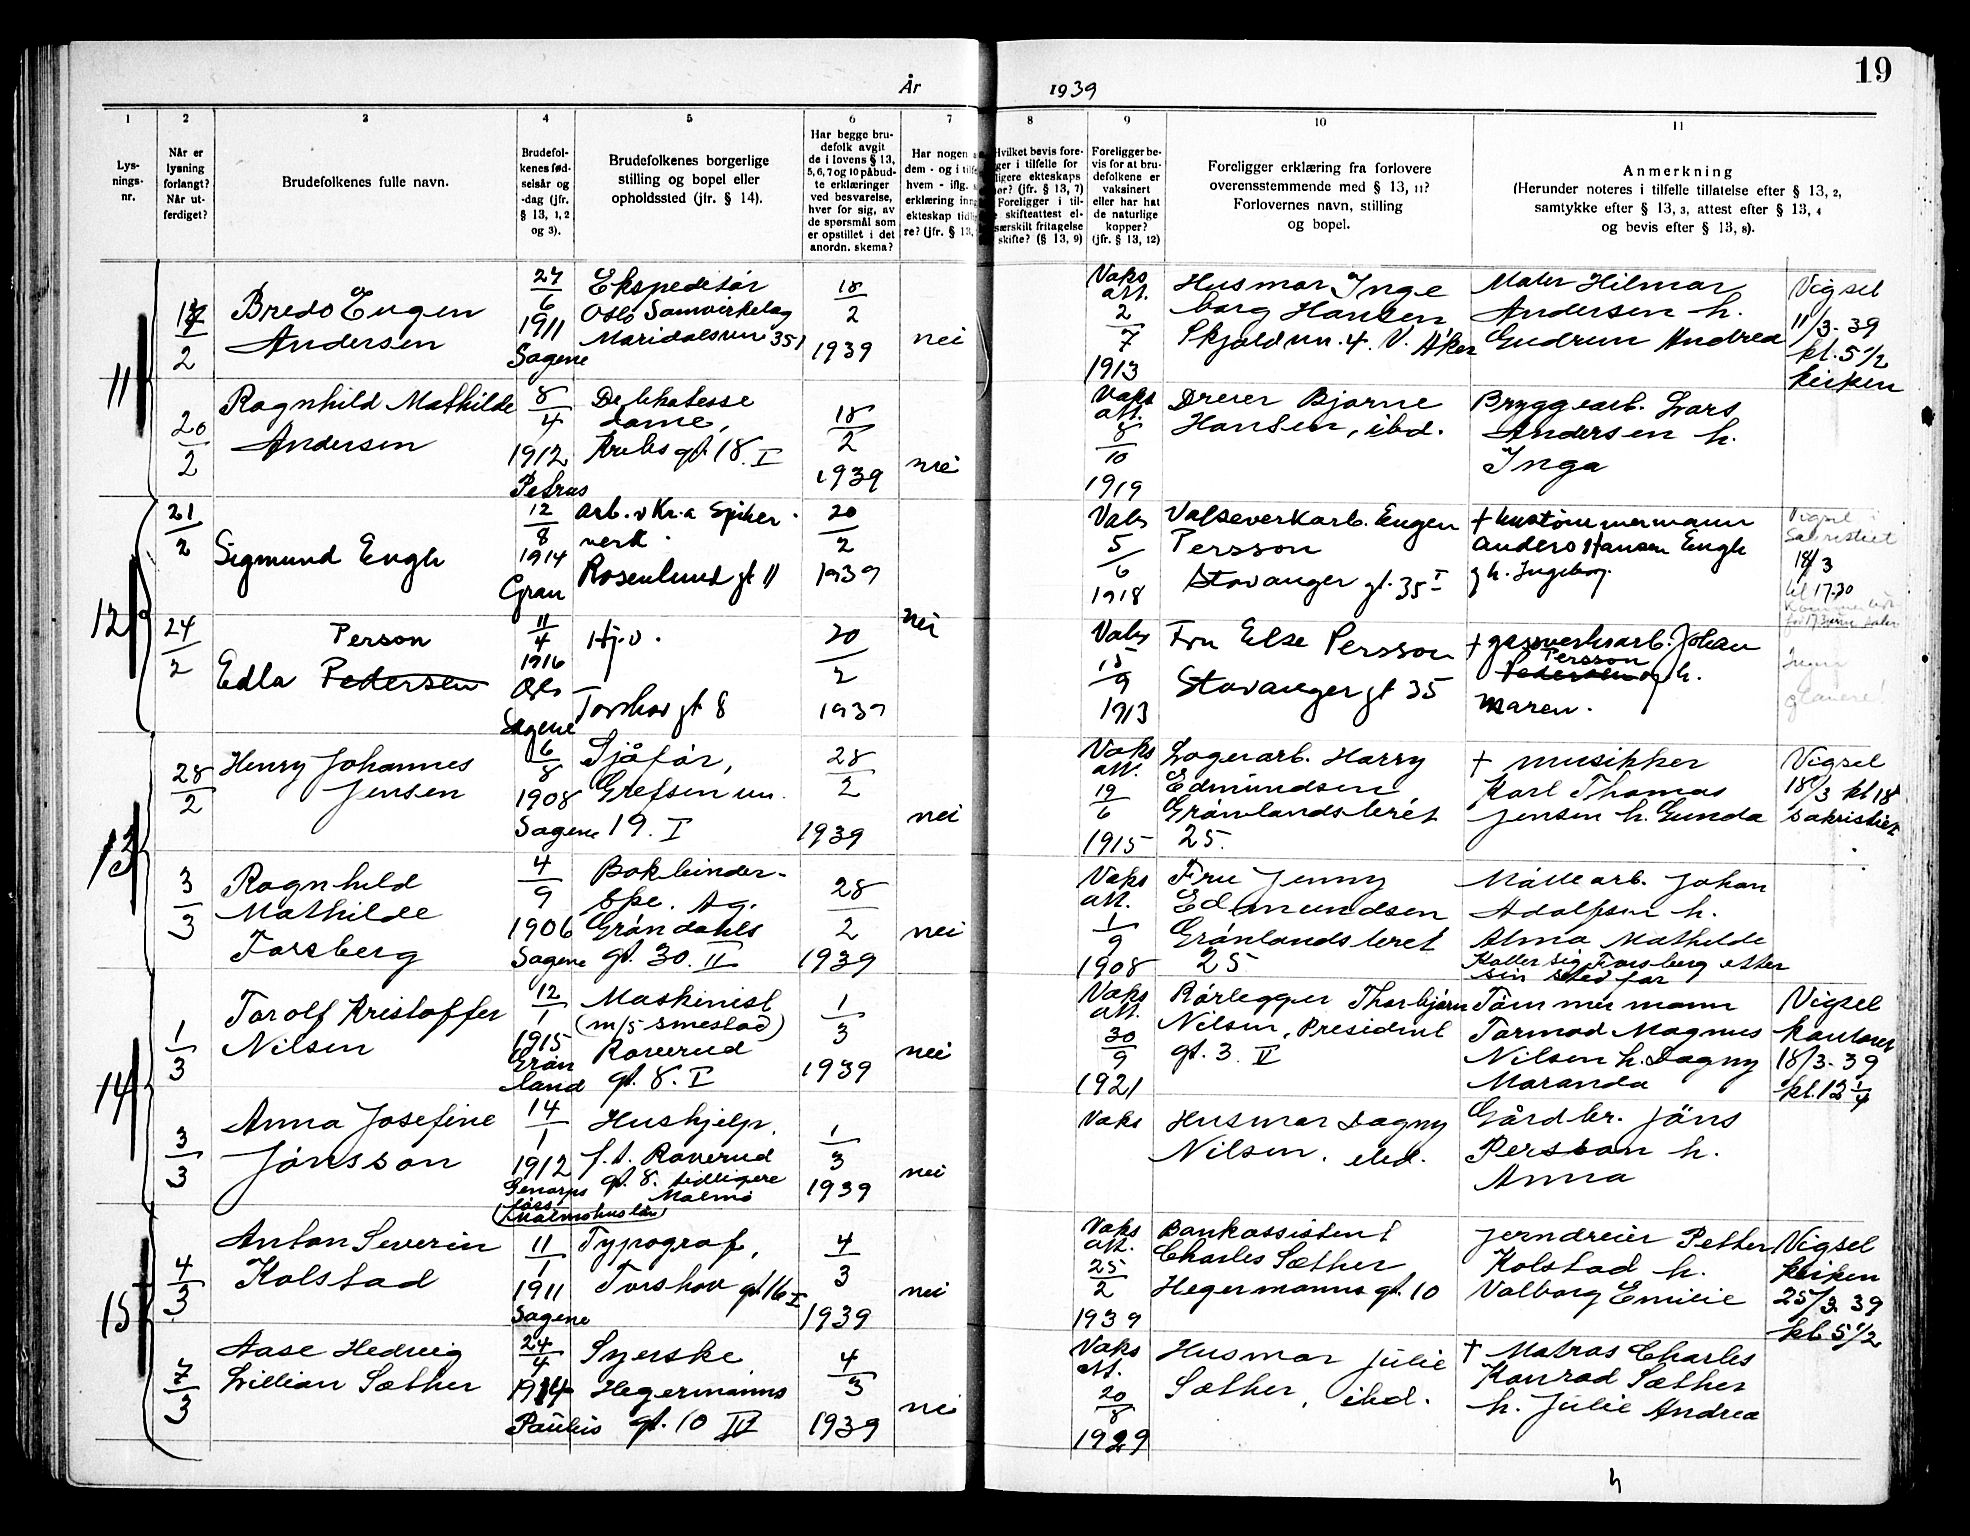 19
År 1939
1 2 3 4 5 6 7 8 9 10 11
Lys-
nings-
nr.
Når er
lysning
forlangt?
Når ut-
ferdiget?
Brudefolkenes fulle navn.
Brudefol-
kenes fød-
selsår og
-dag (jfr.
§ 13, 1, 2
og 3).
Brudefolkenes borgerlige
stilling og bopel eller
opholdssted (jfr. § 14).
Har begge bru-
defolk avgit
de i lovens § 13,
5, 6, 7 og 10 påbud-
te erklæringer
ved besvarelse,
hver for sig, av
de spørsmål som
er opstillet i det
anordn. skema?
Har nogen
dem - og i
hvem - iflg.
erklæring
ekteskap
re? (jfr. § 13,
Hvilket bevis fore-
ger i tilfelle for
ligere ekteskaps
or? (jfr. § 13, 7)
Foreligger i til-
skifteattest el-
særskilt fritagelse
skifte? (§ 13, 9)
Foreligger be-
vis for at bru-
defolkene er
vaksinert
eller har hat
de naturlige
kopper?
(jfr. § 13, 12)
Foreligger erklæring fra forlovere
overensstemmende med § 13, 11?
Forlovernes navn, stilling
og bopel.
Anmerkning
(Herunder noteres i tilfelle tillatelse efter § 13, 2,
samtykke efter § 13, 3, attest efter § 13, 4
og bevis efter § 13, 8).
11
2
Bredo Eugen
Andersen
27
6
1911
Sagene
Ekspeditør
Oslo Samvirkelag
Maridalsvn 351
18
2
1939
nei
Vaks
att.
2
7
1913
Husmor Inge
borg Hansen
Skjoldvn. 4. V. Aker
Maler Hilmar
Andersen h.
Gudrun Andrea
Vigsel
11/3-39
kl. 5 1/2
kirken
20
2
Ragnhild Mathilde
Andersen
8
4
1912
Petrus
Delikatesse
dame,
gt. 18. I
18
2
1939
nei
Vaks
att.
8
10
1919
Dreier Bjarne
Hansen, ibd.
Bryggearb. Lars
Andersen h.
Inga
12
21
2
Sigmund Engh
12
8
1914
Gran
arb. v Kr.a Spiker-
verk.
Rosenlund gt 11
20
2
1939
Vaks
5
6
1918
Valseverkarb. Eugen
Persson
Stavanger gt. 35 I
+ hustømmermann
Anders Hansen Engh
g h. Ingeborg.
Vigsel i
Sakristiet
18/3
kl 17.30
24
2
Person
Edla Pedersen
11
4
1916
Oslo
Sagene
Hj.v.
Torshov gt 8
20
2
1939
nei
Vaks
15
9
1913
Fru Else Persson
Stavanger gt 35
+ gassverksarb. Johan
Persson
Pedersen og h.
Maren.
Ingen
13
28
2
Henry Johannes
Jensen
6
8
1908
Sagene
Sjåfør,
Grefsenvn.
19. I
28
2
1939
nei
Vaks
att.
19
6
1915
Lagerarb. Harry
Edmundsen
Grønlandsleret
25.
+ musikker
Karl Thomas
Jensen h. Gunda
Vigsel
18/3 kl 18
sakristiet
3
3
Ragnhild
Mathilde
Forsberg
4
9
1906
Sagene
Bokbinder-
Grøndahls
gt. 30. II
28
2
1939
nei
Vaks
att.
1
9
1908
Fru Jenny
Edmundsen
Grønlandsleret
25
Møllearb. Johan
Adolfsen h.
Alma Mathilde
Kaller sig Forsberg etter
sin stedfar
14
1
3
Torolf Kristoffer
Nilsen
12
1
1915
Grøn
land
Maskinist
(m/s Smestad)
Raverud
gt. 8. I
1
3
1939
nei
Vaks
att.
30
9
1921
Rørlegger Thorbjørn
Nilsen, President
gt. 3. V
Tømmermann
Tormod Magnus
Nilsen h. Dagny
Maranda
Vigsel
kontoret
18/3-39
kl. 12 1/4
3
3
Anna Josefine
Jønsson
14
1
1912
Genarps
førs.
(Malmøhus län)
Hushjelp.
f.t. Raverud
gt. 8. tidligere
Malmø
1
3
1939
nei
Vaks
Husmor Dagny
Nilsen. ibd.
Gårdbr. Jöns
Persson h.
Anna
15
4
3
Anton Severin
Kolstad
11
1
1911
Sagene
Typograf,
Torshov gt 16 I
4
3
1939
nei
Vaks
att.
25
2
1939
Bankassistent
Charles Sæther
Hegermanns gt. 10
Jerndreier Petter
Kolstad h.
Valborg Emilie
Vigsel
kirken
25/3 39
kl. 5 1/2
7
3
Aase Hedvig
Lillian Sæther
24
4
1914
Paulus
Syerske
Hegermanns
gt. 10 IV
4
3
1939
nei
Vaks
att.
20
8
1929
Husmor Julie
Sæther, ibd.
+ Matros Charles
Konrad Sæther
h. Julie Andrea